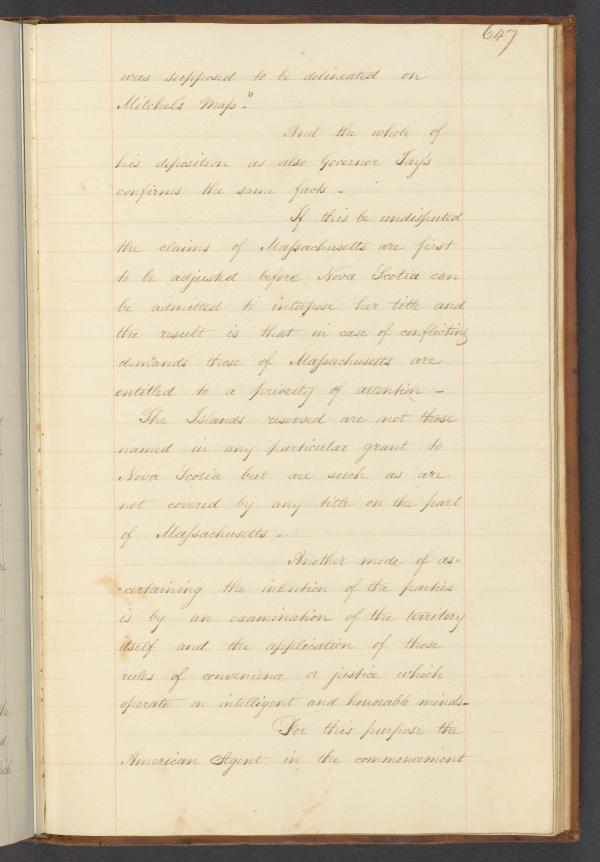 647
was supposed to be delineated on
Mitchel's Map."
And the whole of
his deposition as also Governor Jay's
confirms the same facts -
If this be undisputed
the claims of Massachusetts are first
to be adjusted before Nova Scotia can
be admitted to interpose her title and
the result is that in case of conflicting
demands those of Massachusetts are
entitled to a priority of attention -
The Islands reserved are not those
named in any particular grant to
Nova Scotia but are such as are
not covered by any title on the part
of Massachusetts -
Another mode of as-
-certaining the intention of the parties
is by an examination of the territory
itself and the application of those
rules of convenience or justice which
operate on intelligent and honorable minds -
For this purpose the
American Agent in the commencement